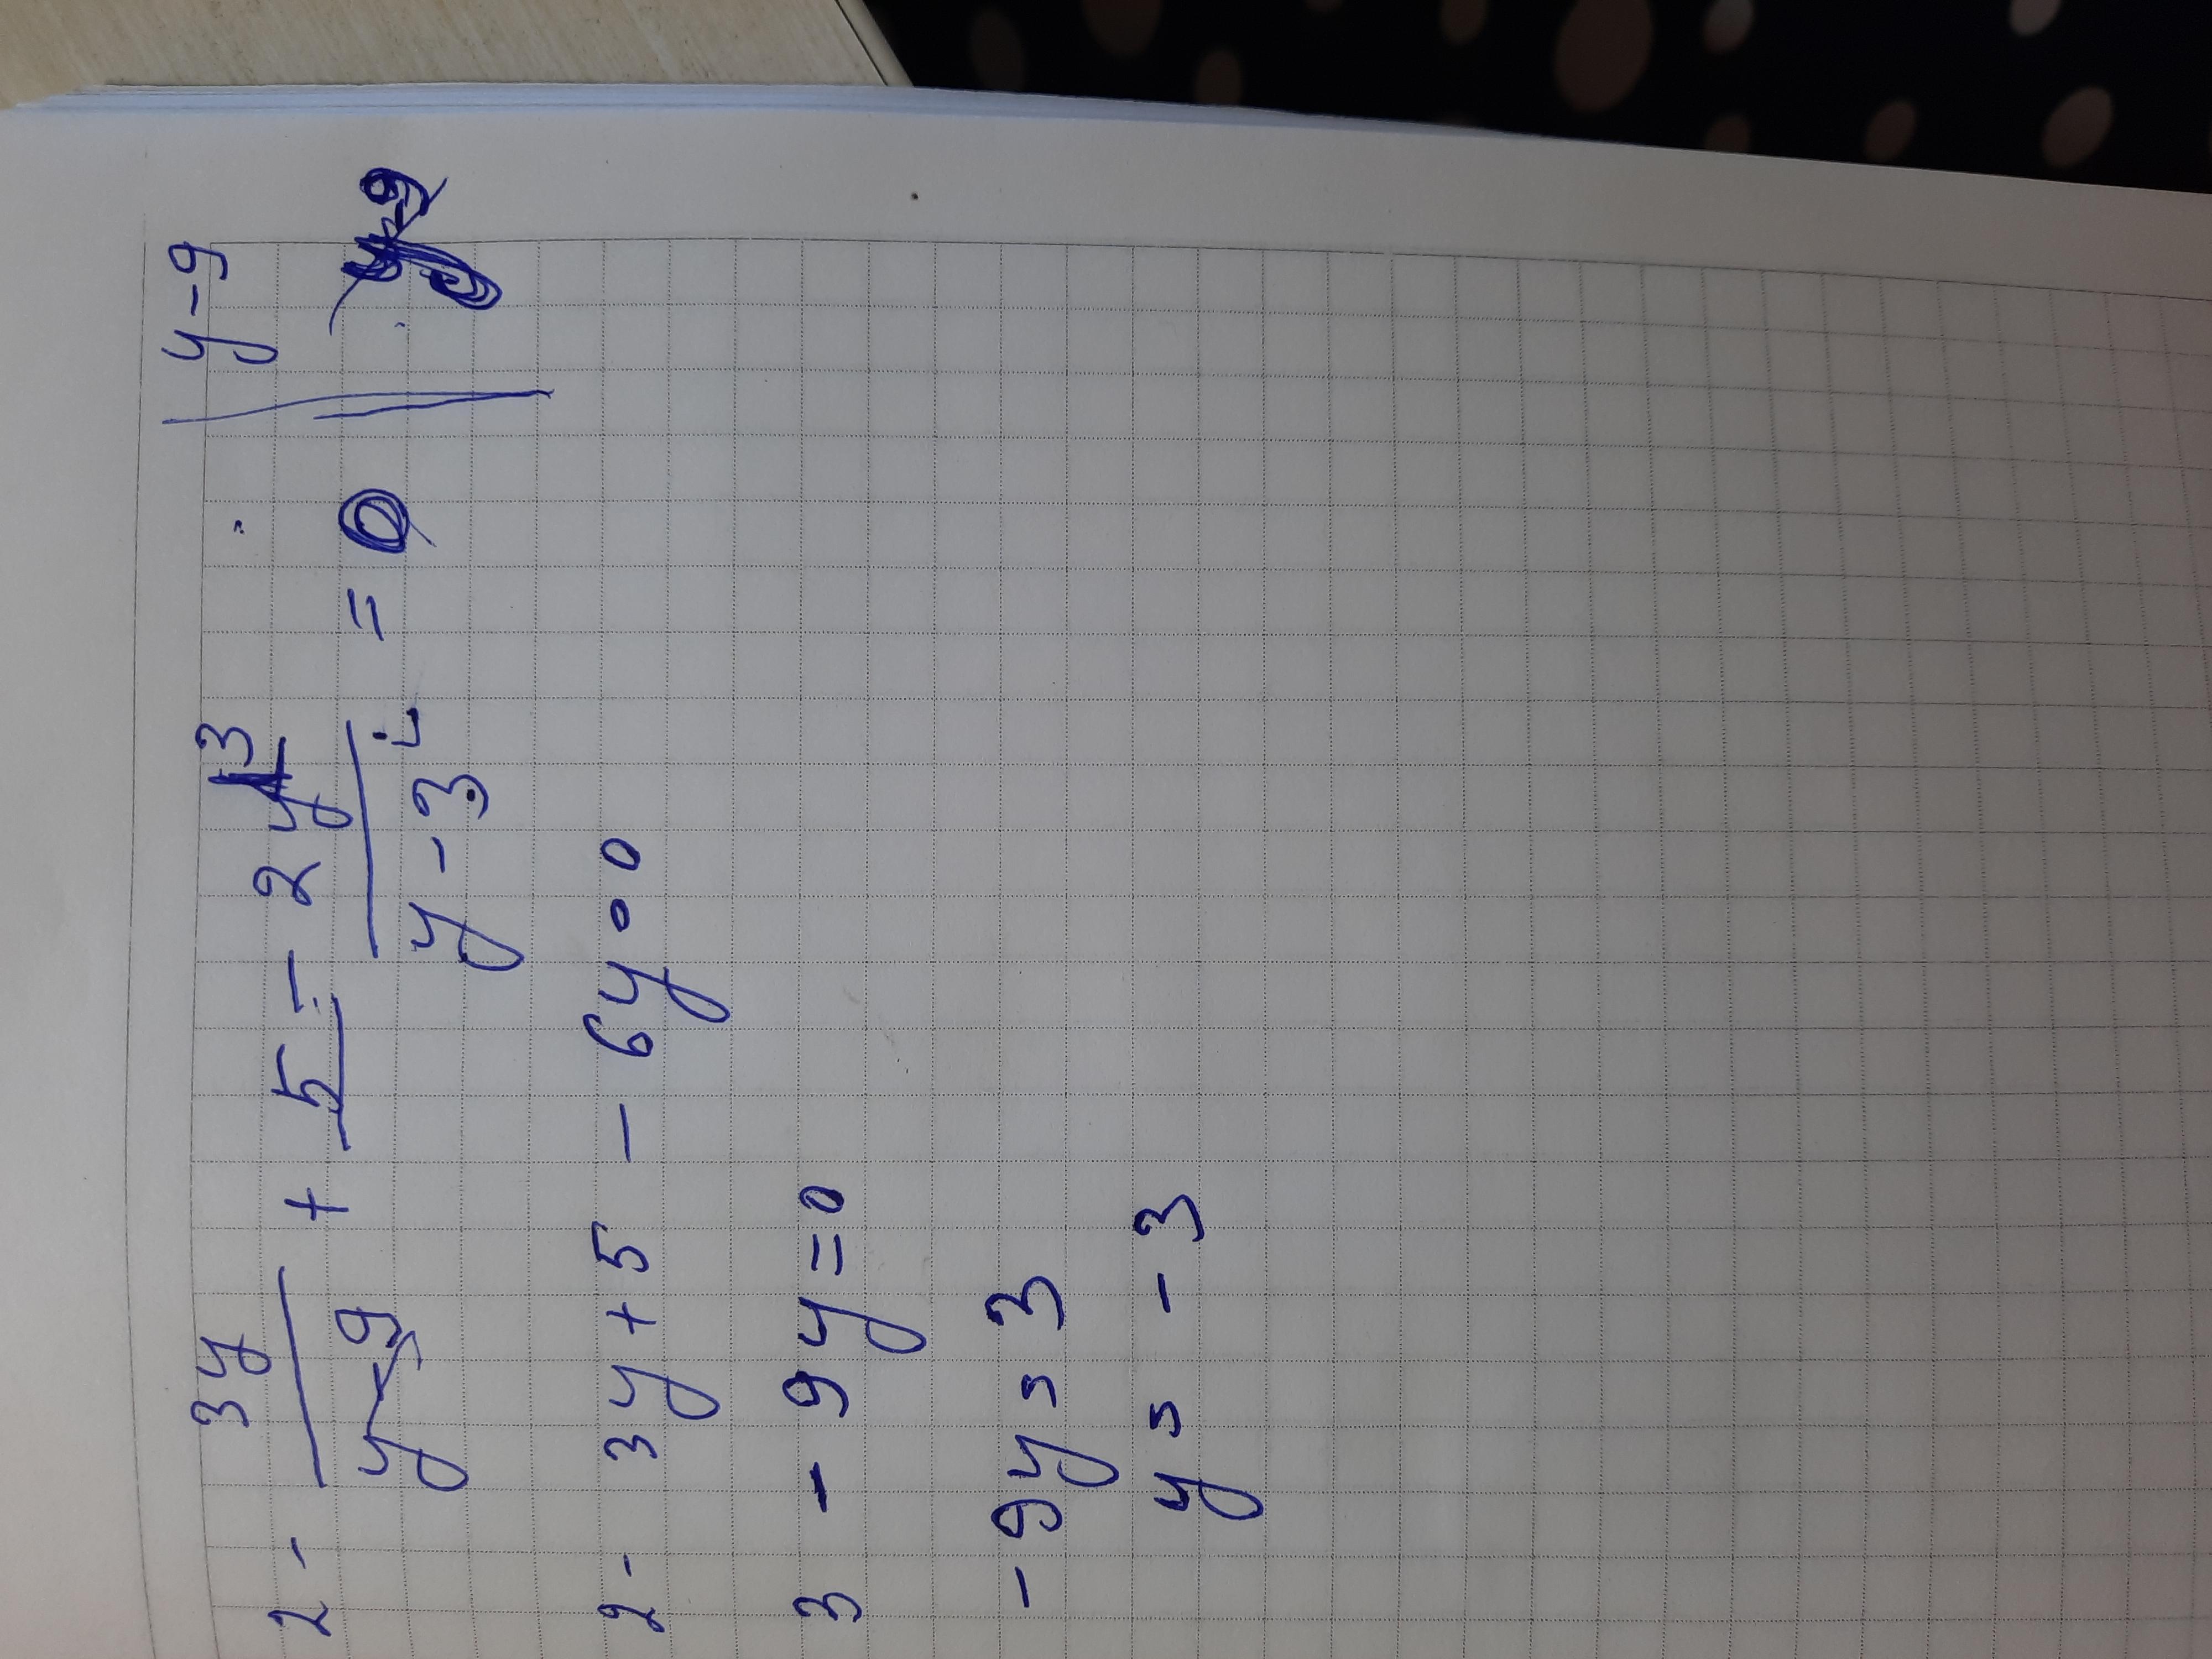 2 - 3y/y-9 + 5 - 2y·3/y-3 = 0 | y-9
2 - 3y + 5 - 6y = 0
3 - 9y = 0
-9y = 3
y = -3